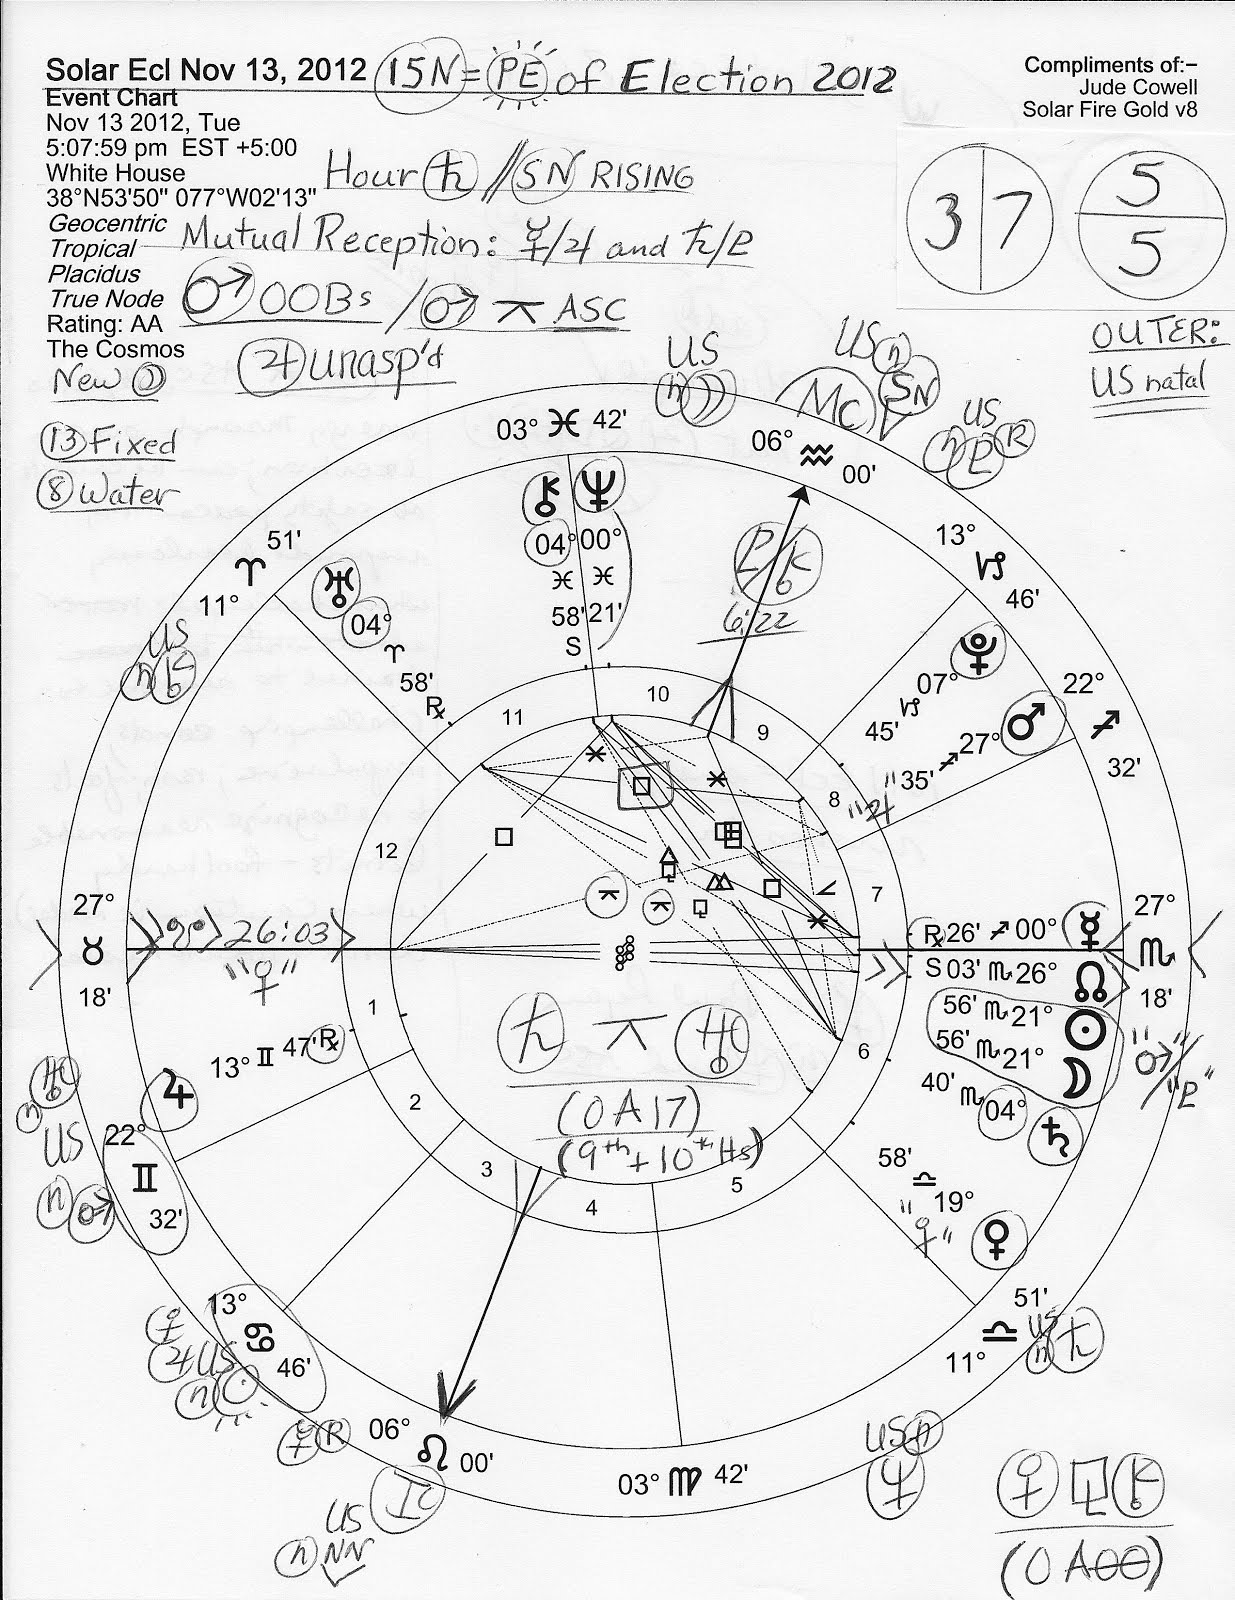 Solar Ecl Nov 13, 2012 15N = PE of Election 2012
Event Chart
Nov 13 2012, Tue
5:07:59 pm EST +5:00
White House
38°N53'50" 077°W02'13"
Geocentric
Tropical
Placidus
True Node
Rating: AA
The Cosmos
New ☽
Compliments of:-
Jude Cowell
Solar Fire Gold v8
Hour ♄ // SN RISING
Mutual Reception: ☿/♃ and ♄/P
♂ OOBs / ♂ ⚻ ASC
♃ unasp'd
13 Fixed
8 Water
3 7
5
5
OUTER:
US natal
US
n ☽
US n
SN
MC
US
n P R
03° ♓ 42'
06° ♒ 00'
13° ♑ 46'
22° ♐ 32'
27° ♏ 18'
11° ♎ 51'
03° ♍ 42'
06° ♌ 00'
13° ♋ 46'
22° ♊ 32'
27° ♉ 18'
11° ♈ 51'
⚷ 04° ♓ 58' S
♆ 00° ♓ 21'
P/⚷
6:22
♅ 04° ♈ 58' ℞
US
n ⚷
♇ 07° ♑ 45'
♂ 27° ♐ 35'
"♃"
℞ 26' ♐ 00° ☿
S 03' ♏ 26° ☊
56' ♏ 21° ☉
56' ♏ 21° ☽
"♂"/"P"
40' ♏ 04° ♄
58' ♎ 19° ♀
"♀"
26:03
"♀"
13° ♊ 47' ℞
♃
1
2
3
4
5
6
7
8
9
10
11
12
♄ ⚻ ♅
(0A17)
(9th + 10th Hs)
♅
n
US
n ♂
♀
♃ US
n ☉
☿ R
IC
US
n NN
US
n ♄
US n
♆
♀ ⚼ ⚷
(0A00)